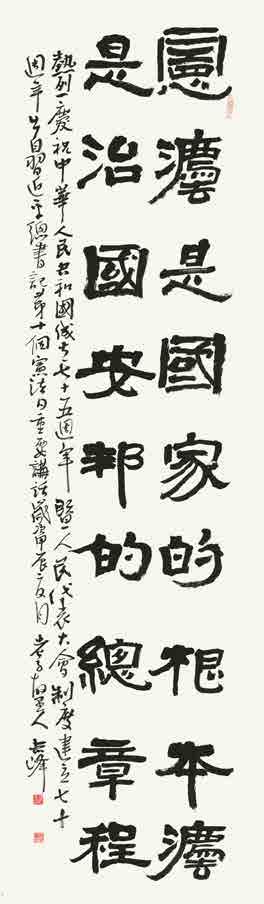 憲灋是國家的根本灋
是治國安邦的總章程
熱烈慶祝中華人民共和國成立七十五週年暨人民代表大會制度建立七十
週年自習近平總書記第十個憲法日重要講話歲甲辰月老子故里人